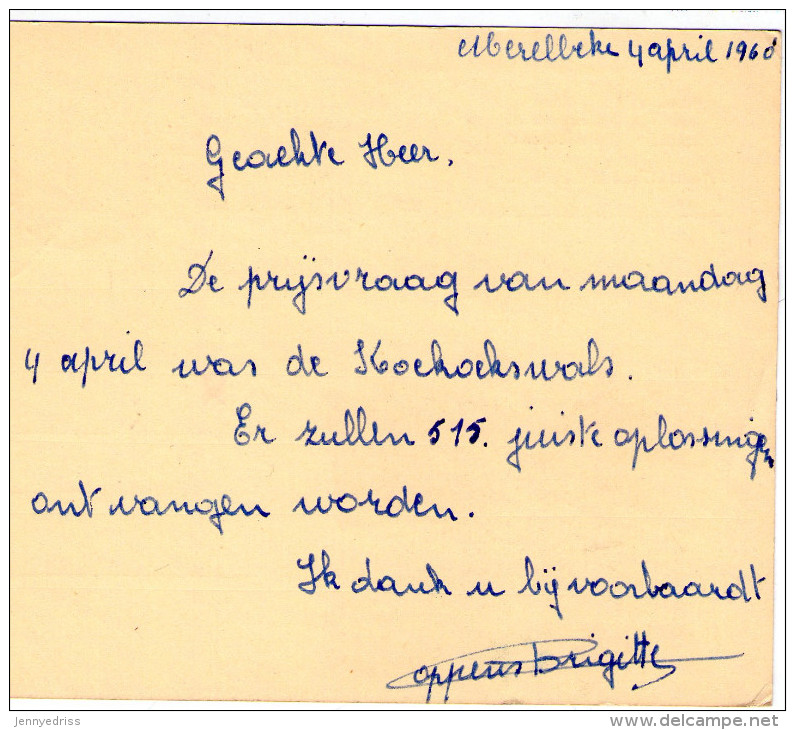 Merelbeke 4 april 1960
Geachte Heer,
De prijsvraag van maandag
4 april was de Koekoekswals.
Er zullen 515. juiste oplossingen
ontvangen worden.
Ik dank u bij voorbaardt
Coppens Brigitte
jennyedriss
www.delcampe.net